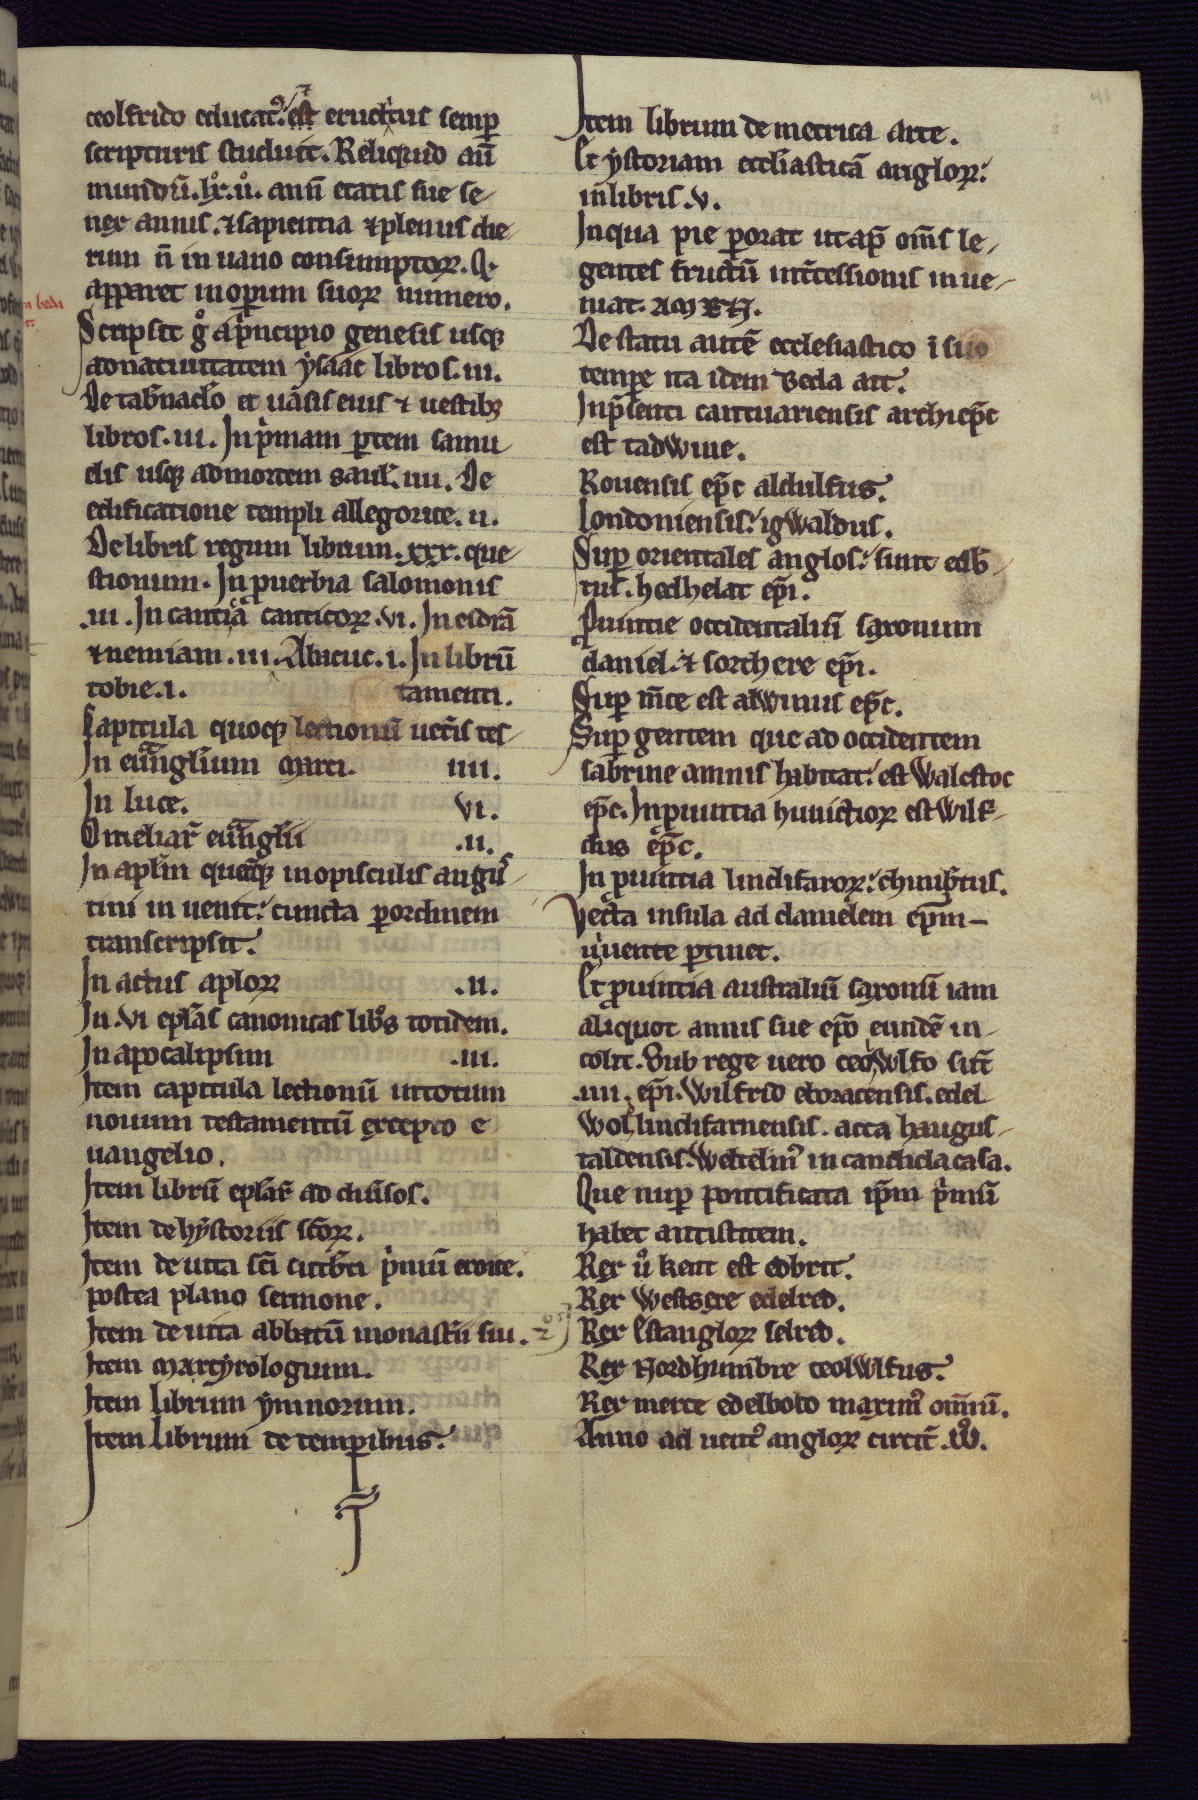 ceolfrido educatꝰ. ⁊ est eruditus semꝑ
scripturis studuit. Reliquid aū
mundū. lx. uº. anū etatis sue se-
nex annis. ⁊ sapientia ⁊ plenus die-
rum ñ in uano consumptoꝝ. Qͥ
apparet in oꝑum suoꝝ numero.
Scripsit gº a pͥncipio genesis usqꝫ
ad natiuitatem ysaac libros. iii.
De tab̄nac̄lo et uāsis eius ⁊ uestibꝫ
libros. iii. In pͥmam ꝑtem samu-
elis usqꝫ ad mortem saul. iiii. De
edificatione templi allegorice. ii.
De libris regum librum. xxx. que-
stionum. In ꝓuerbia salomonis
.iii. In cantica canticoꝝ. vi. In esdrā
⁊ nemiam. iii. Abacuc. i. In librū
tobie. i. tamenti.
Capitula quoqꝫ lectionū uet̄is tes-
In euangl̄ium marci. iiii.
In luce. vi.
Omeliaꝝ euangl̄ii .ii.
In apl̄m quecūqꝫ in opisculis augus-
tini in uenit: cuncta ꝑ ordinem
transcripsit.
In actus aploꝝ .ii.
In .vi epl̄as canonicas libͦs totidem.
In apocalipsim .iii.
Item capitula lectionū in totum
nouum testamentū excepto e-
uangelio.
Item librū epl̄aꝝ ad diu̾sos.
Item de hystoriis sc̄oꝝ.
Item de uita sc̄i cutb̄ti pͥmū eroice.
postea plano sermone.
Item de uita abbatū monast̄ii sui.
Item martyrologium.
Item librum ymnorum.
Item librum de temporibus.
Item librum de metrica arte.
Et ystoriam eccl̄iasticā angloꝝ:
in libris .v.
In qua pie ꝑorat ut ap̄ om̄s le-
gentes fructū int̄cessionis inue-
niat. AMEN.
De statu autē ecclesiastico ī suo
tempore ita idem Beda ait.
In p̄senti cantuariensis archiep̄c
est tadwine.
Rouensis ep̄c aldulfus.
Londoniensis: igwaldus.
Suꝑ orientales anglos: sunt edb̄-
tus. hedhelac ep̄i.
Prouintie occidentaliū saxonum
daniel. ⁊ forthere ep̄i.
Suꝑ m̄ce est alwinus ep̄c.
Suꝑ gentem que ad occidentem
sabrine amnis habitat: est walestoc
ep̄c. In ꝓuintia huuictioꝝ est wilf-
dus ep̄c.
In ꝓuintia lindifaroꝝ: chinib̄tus.
Vecta insula ad danielem ep̄m
uͥuente ꝑtinet.
Et ꝓuintia australiū saxonū iam
aliquot annis sue ep̄o eundē in-
colit. Sub rege uero ceolwlfo sūt
.iiii. ep̄i. Wilfrid eboracensis. edel
wol lindifarnensis. acca haugus-
taldensis. Wehtelmꝰ in candida casa.
Que nuꝑ pontificata ip̄m pͥmū
habet antistitem.
Rex uº kent est edbrit.
Rex westsexe edelred.
Rex Estangloꝝ selred.
Rex Nordhumbre ceolwlfus.
Rex merce edelbold maximꝰ omniū.
Anno ad uentꝰ angloꝝ circit̄